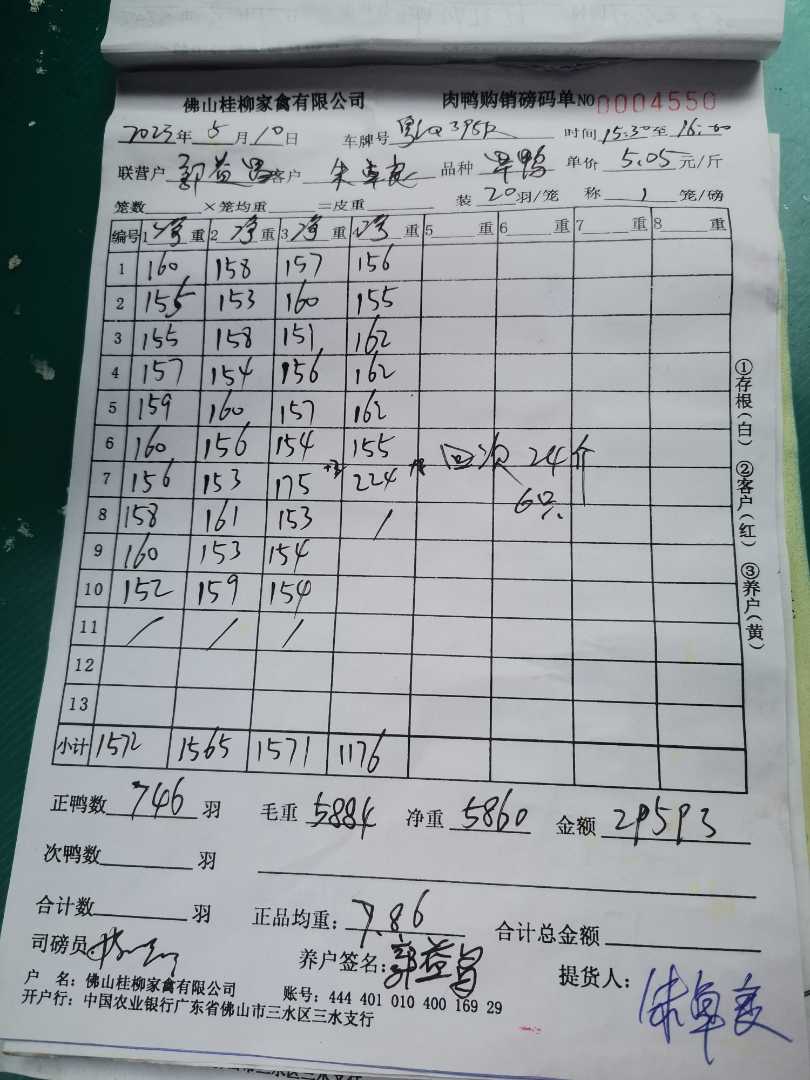 佛山桂柳家禽有限公司 肉鸭购销磅码单NO 0004550
2023年5月10日 车牌号 时间15:30至16:00
联营户 郭益昌 客户 朱卓良 品种 旱鸭 单价 5.05元/斤
笼数 ×笼均重 =皮重 装20羽/笼 称1笼/磅
编号 1净重 2净重 3净重 净重 5重 6重 7重 8重
1 160 158 157 156
2 155 153 160 155
3 155 158 151 162
4 157 154 156 162
5 159 160 157 162
6 160 156 154 155 回次 24斤
7 156 153 175 224 6只
8 158 161 153 /
9 160 153 154
10 152 159 154
11 / / /
12
13
小计 1572 1565 1571 1176
正鸭数 746 羽 毛重 5884 净重 5860 金额 29593
次鸭数 羽
合计数 羽 正品均重: 7.86 合计总金额
司磅员: 养户签名: 郭益昌 提货人: 朱卓良
户 名: 佛山桂柳家禽有限公司 账号: 444 401 010 400 169 29
开户行: 中国农业银行广东省佛山市三水区三水支行
①存根(白) ②客户(红) ③养户(黄)